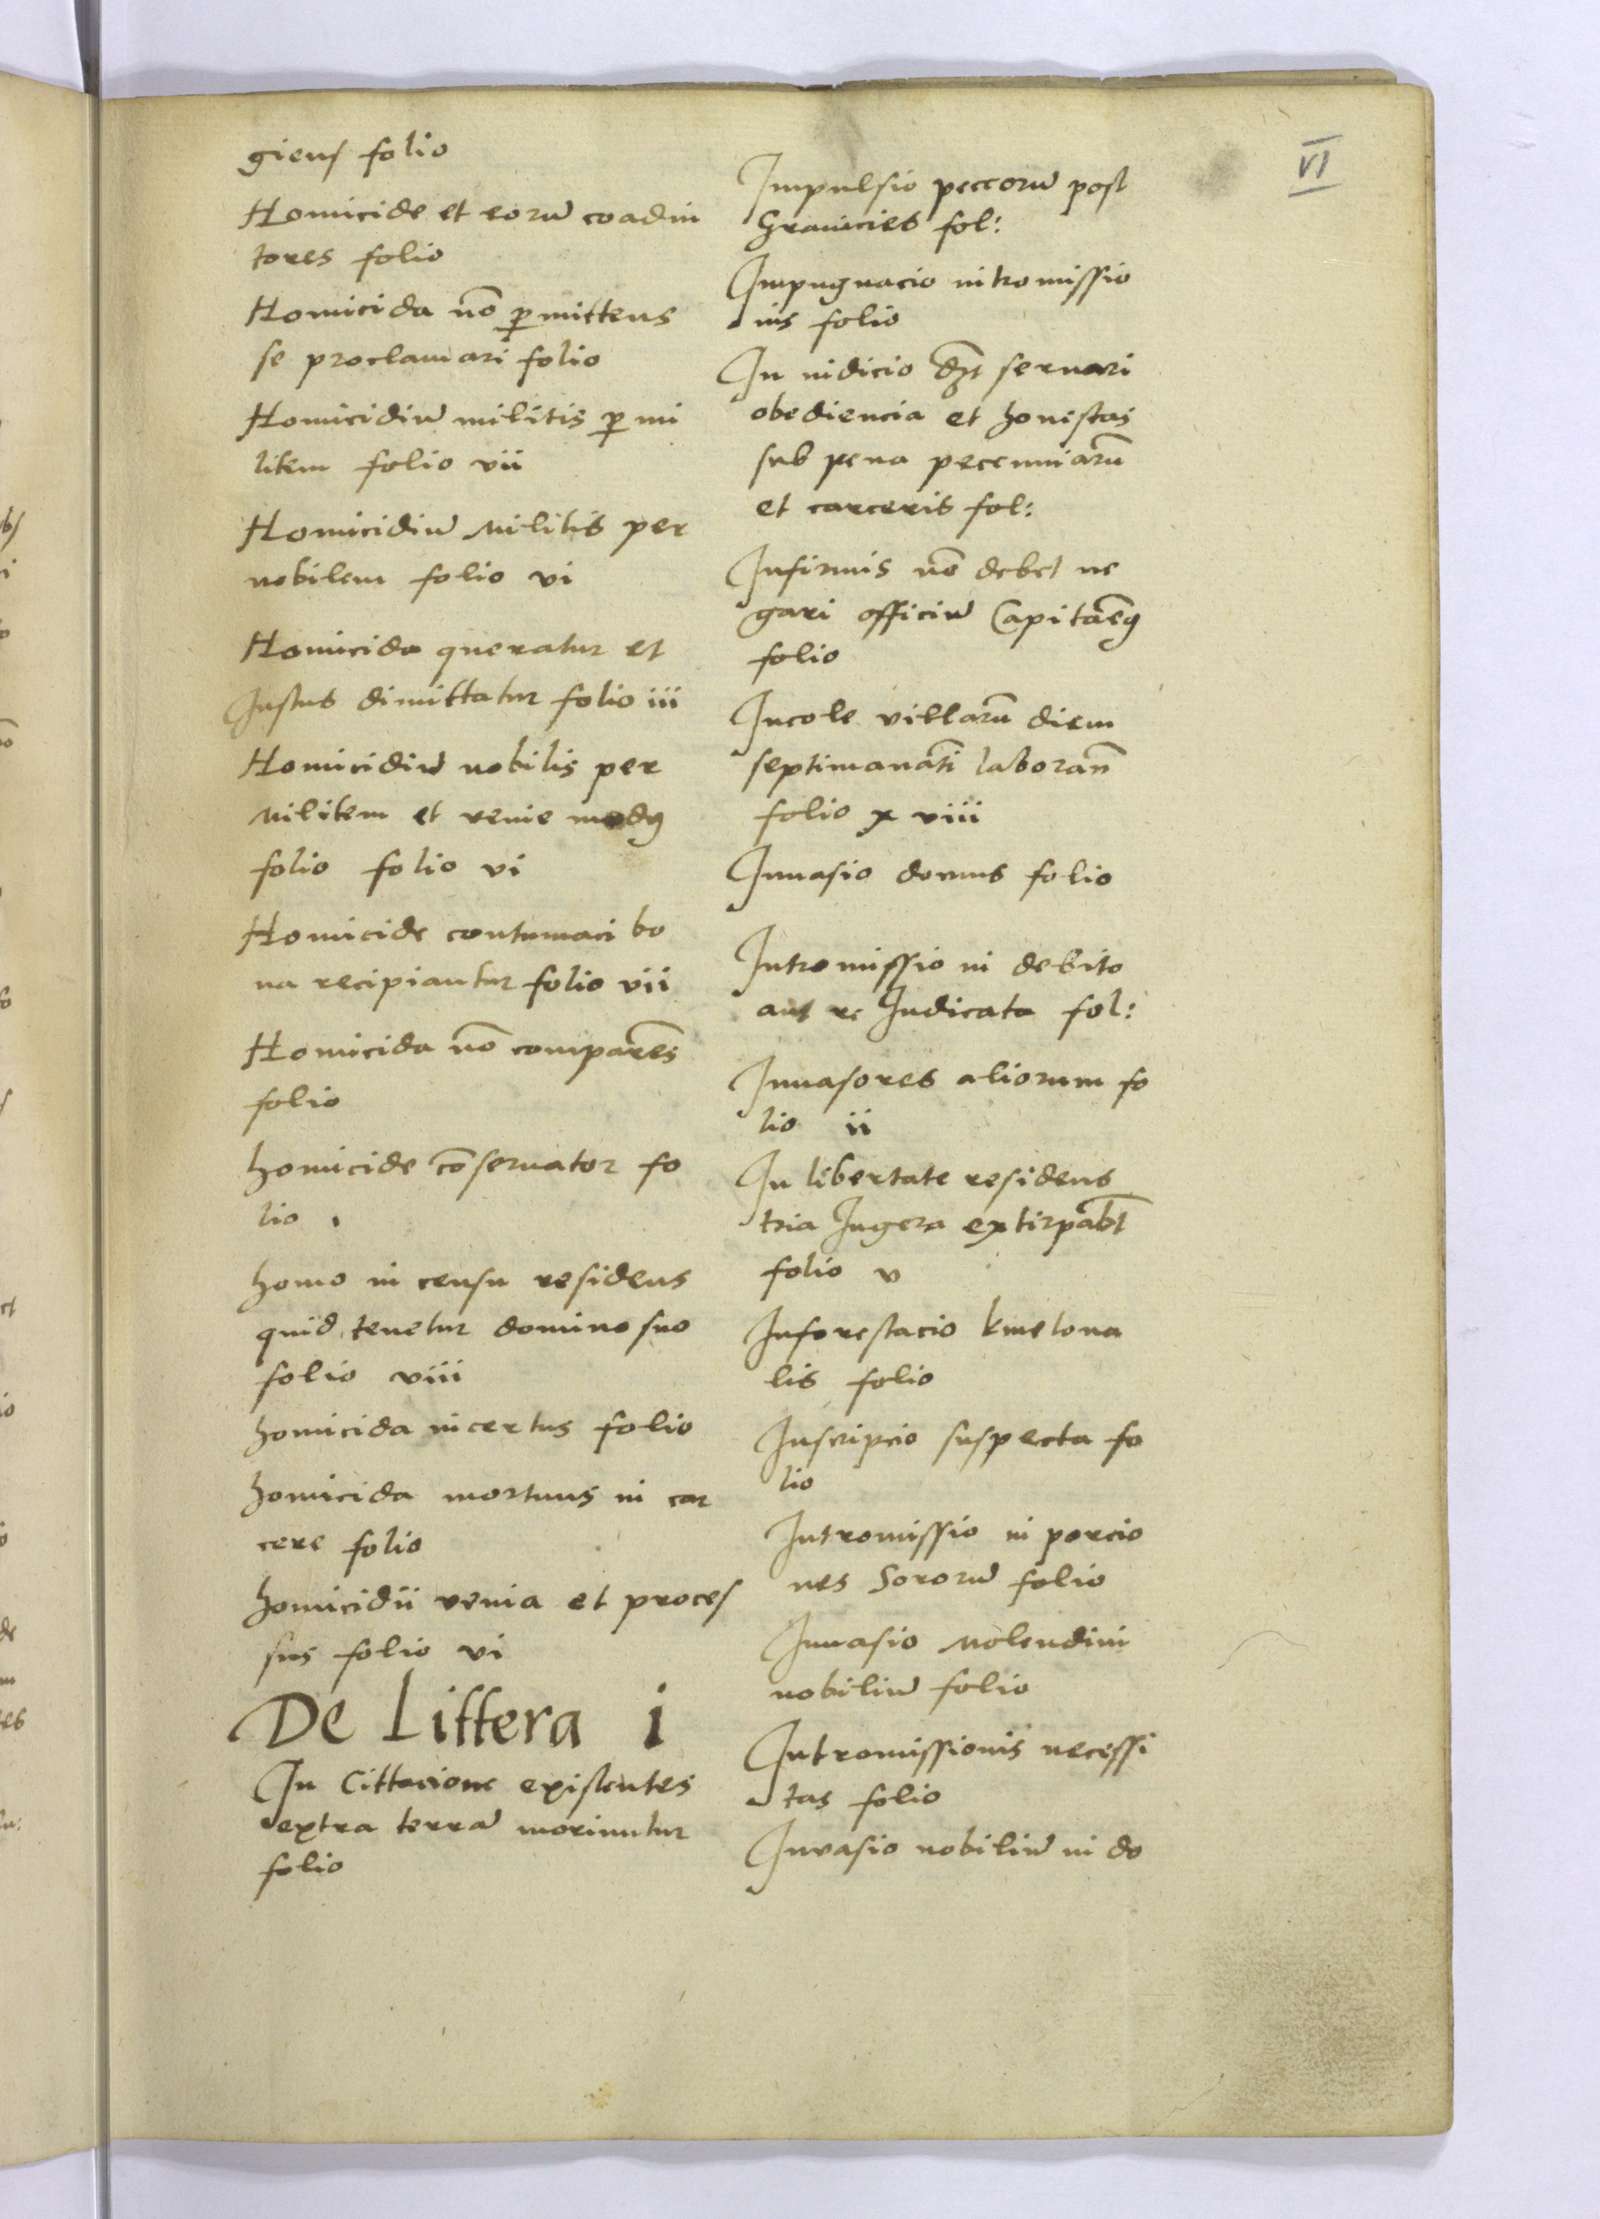 VI
giens folio
Homicide et eorū coadiu
tores folio
Homicida nō p̱mittens
se proclamari folio
Homicidiū militis p̱ mi
litem folio vii
Homicidiū Militis per
nobilem folio vi
Homicida queratur et
Iustus dimittatur folio iii
Homicidiū nobilis per
Militem et venie modꝰ
folio folio vi
Homicide contumaci bo
na recipiantur folio vii
Homicida nō comparēs
folio
homicide cōseruator fo
lio
homo in censu residens
quid tenetur domino suo
folio viii
homicida incertus folio
homicida mortuus in car
cere folio
homicidii venia et proces
sus folio vi
De Littera i
In Cittacione existentes
extra terrā moriuntur
folio
Impulsio peccorū post
Granicies fol:
Impugnacio intromissio
nis folio
In iudicio dn̄t seruari
obediencia et honestas
sub pena pecunniarū
et carceris fol:
Infirmis nō debet ne
gari officiū Capitāeꝰ
folio
Incole villarū diem
septimanātī laborān
folio x viii
Inuasio domus folio
Intromissio in debito
aut re Iudicata fol:
Inuasores aliorum fo
lio ii
In libertate residens
tria Iugera extirpāb̄t
folio v
Inforestacio kmetona
lis folio
Inscripcio suspecta fo
lio
Intromissio in porcio
nes Sororū folio
Inuasio Molendini
nobiliū folio
Intromissionis necessi
tas folio
Invasio nobiliū in do